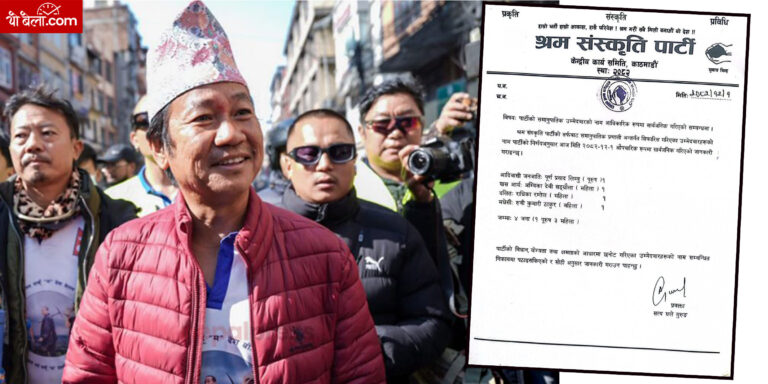 यो बेला.com
प्रकृति संस्कृति प्रविधि
श्रम संस्कृति पार्टी
केन्द्रीय कार्य समिति, काठमाडौं
स्थाः २०८२
प.सं.
च.नं. मितिः २०८२/१२/१
विषयः पार्टीको समानुपातिक उम्मेदवारको नाम आधिकारिक रूपमा सार्वजनिक गरिएको सम्बन्धमा ।
श्रम संस्कृति पार्टीको तर्फबाट समानुपातिक प्रणाली अन्तर्गत सिफारिस गरिएका उम्मेदवारहरूको
नाम पार्टीको निर्णयअनुसार आज मिति २०८२-१२-१ औपचारिक रूपमा सार्वजनिक गरिएको जानकारी
गराइन्छ।
आदिवासी जनजातिः पूर्ण प्रसाद लिम्बु (पुरुष) १
खस आर्यः अम्बिका देवी (महिला) १
दलितः राधिका रम्तेल (महिला) १
मधेसीः रुवी कुमारी ठाकुर (महिला) १
जम्माः ४ जना (१ पुरुष ३ महिला)
पार्टीको विधान, योग्यता तथा क्षमताको आधारमा छनोट गरिएका उम्मेदवारहरूको नाम सम्बन्धित
निकायमा पठाइसकिएको र सोही अनुसार जानकारी गराउन चाहन्छु ।
प्रवक्ता
गुरुङ